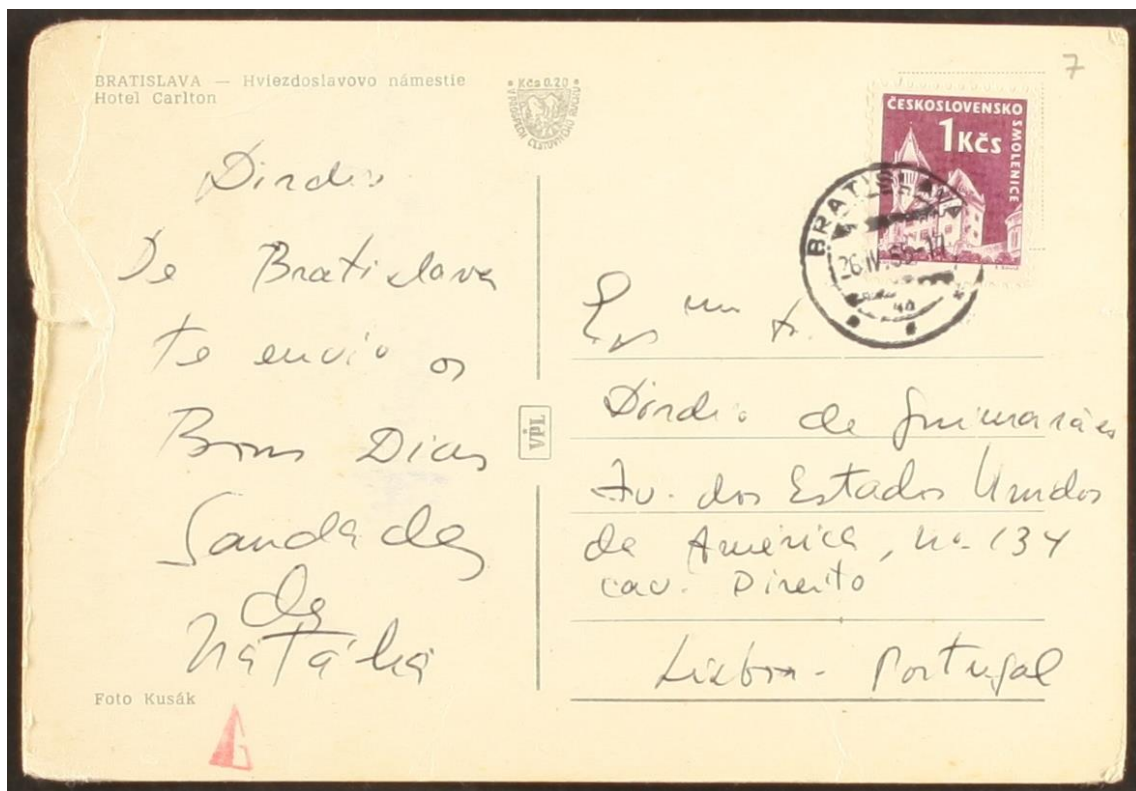 BRATISLAVA — Hviezdoslavovo námestie
Hotel Carlton
Kčs 0.20
7
ČESKOSLOVENSKO
1 Kčs
SMOLENICE
BRATISLAVA
Dirdio
De Bratislava
te envio os
Bons Dias
Saudades
de
Natália
VPL
Sr.
Dórdio de Guimarães
Av. dos Estados Unidos
da América, nº 134
cav. Direito
Lisboa - Portugal
Foto Kusák